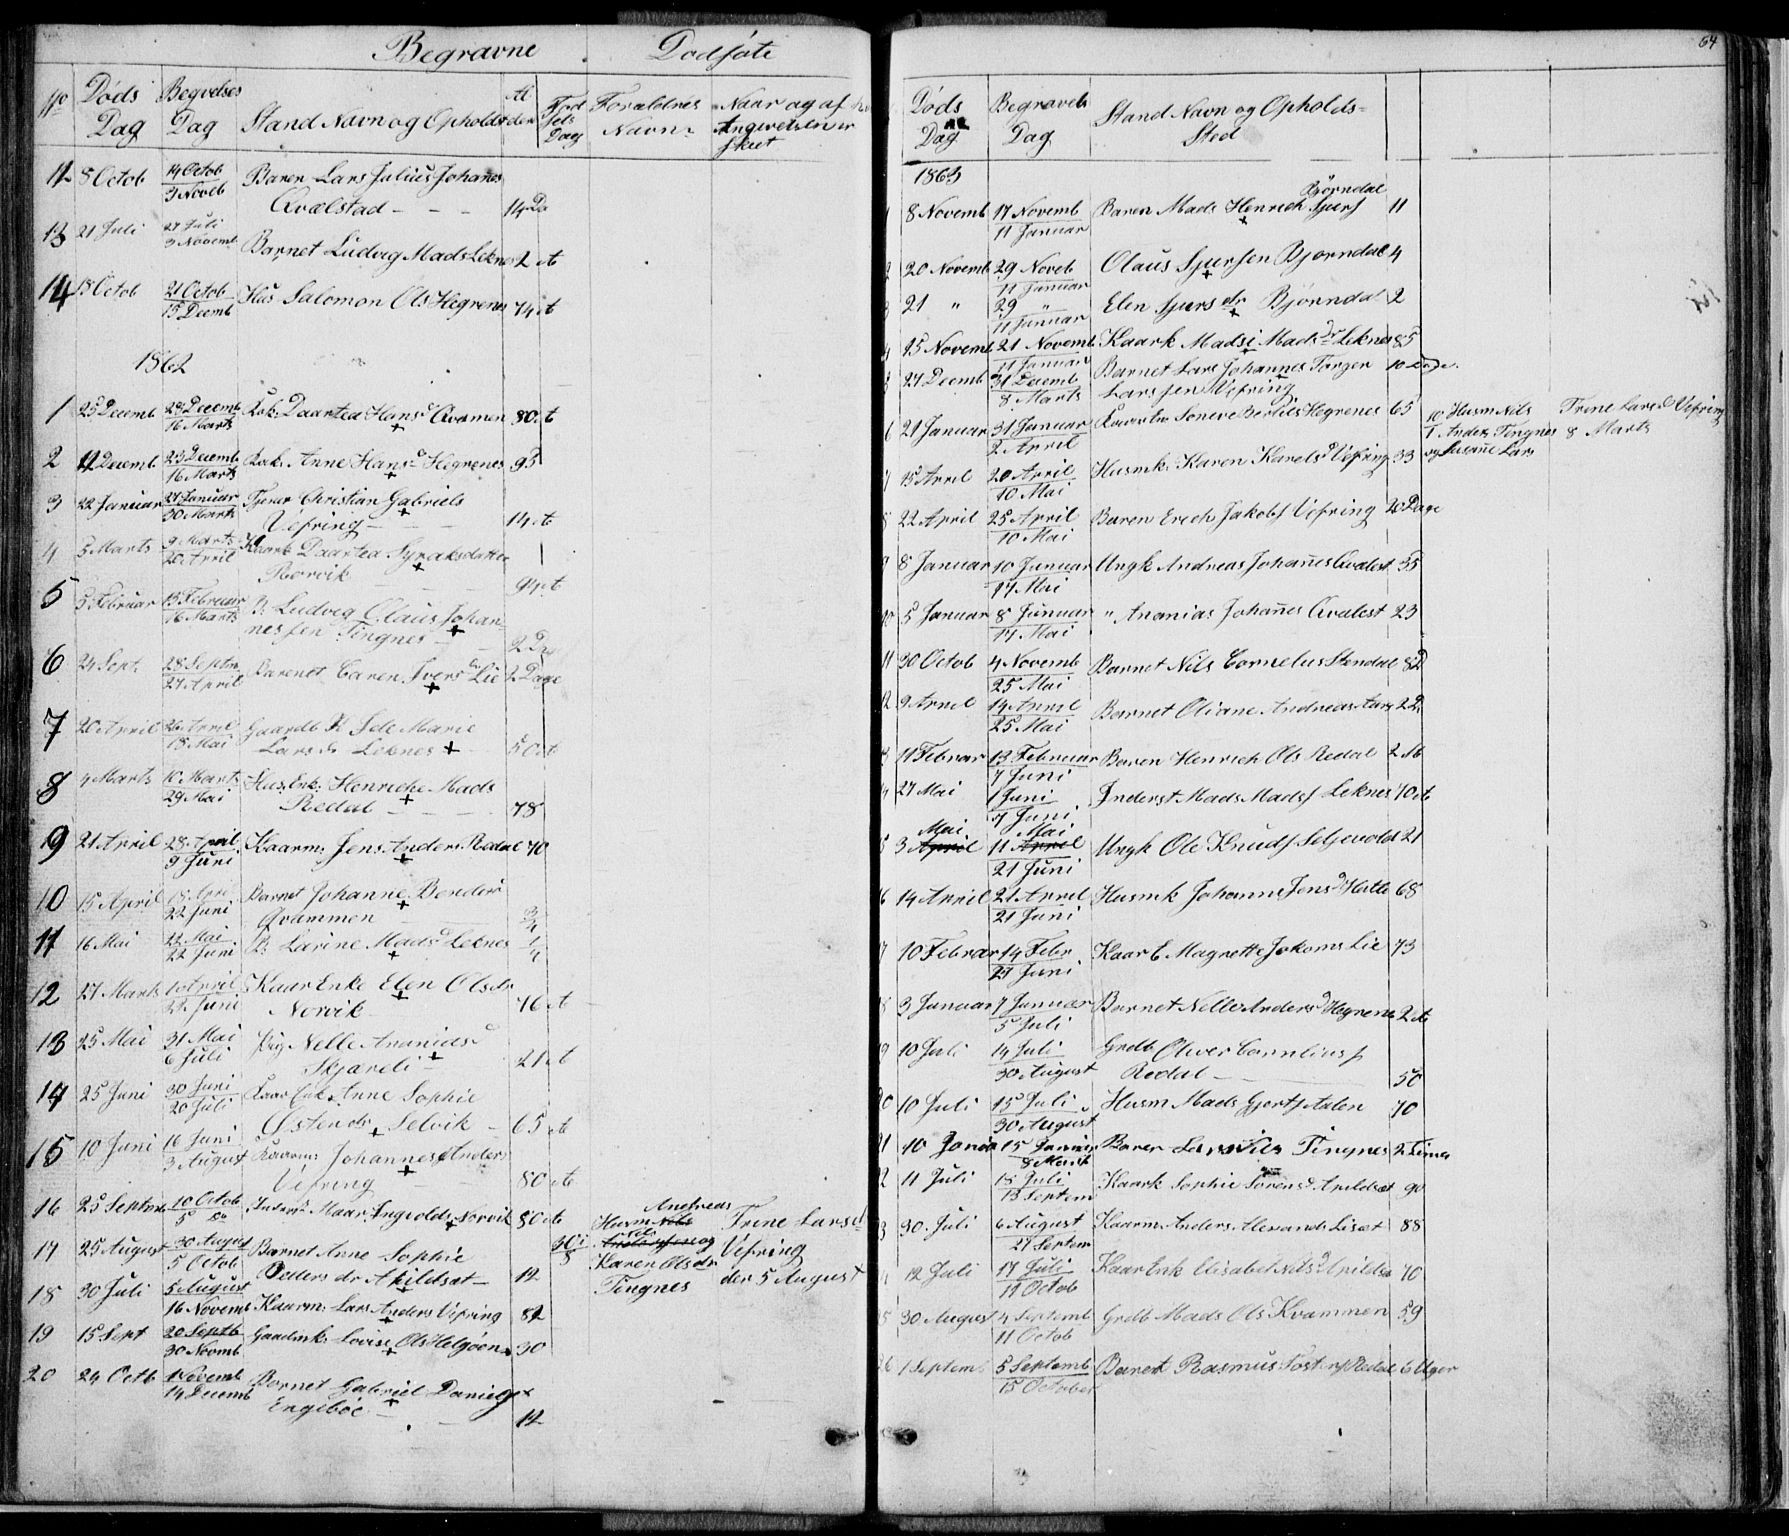 Begravne Dødføte
No Døds Dag Begvelses Dag Stand Navn og Opholds Al der Fød sels Dag Forældres Navn Naar og af Angivelsen er skeet
12 8 Octob 14 Octob 3 Noveb Baren Lars Julius Johanes
Qvælstad - - - 14 Da
13 21 Juli 27 Juli 3 Novemb Barnet Ludvig Mads Leknes 2 At
14 18 Octob 21 Octob 15 Decemb Hus Salomon Ols Hegrenes 74 At
1862
1 25 Decemb 28 Decemb 16 Marts Kok: Daartea Hans d Qvamen 80 At
2 12 Decemb 23 Decemb 16 Marts Kok. Anne Hans d Hegrenes 95
3 22 Januar 27 Januar 30 Marts Tjener Christian Gabriels
Vefring - - - 14 At
4 3 Marts 9 Marts 20 April Kaark Daartea Syraksdatter
Rørvik 94 At
5 5 Februar 13 Februar 16 Marts B: Ludvig Olaus Johan-
nessen Tingnes - 2 Da
6 24 Sept. 28 Septm 27 April Barenet Caren Ivers dr Lie 2 Dage
7 20 April 26 April 18 Mai Gaardb K Sele Marie
Lars d Leknes 50 At
8 4 Marts 10 Marts 29 Mai Hus. Enk. Henriche Mads
Redal - - - 78
9 21 April 28 April 9 Juni Kaarm: Jens Anders Redal 70
10 15 April 18 Apri 22 Juni Barnet Johanne Bender
Qvammen 3/4
11 16 Mai 22 Mai 22 Juni B: Larine Mads d Leknes 1/4
12 27 Marts 1 April 22 Juni Kaar Enke Elen Ols dr
Norvik 76 At
13 25 Mai 31 Mai 6 Juli Pig Nelle Ananias d
Skjareli - 21 At
14 25 Juni 30 Juni 20 Juli Kaar Enk Anne Sophie
Østen dr Selvik - 65 At
15 10 Juni 16 Juni 3 August Kaarm: Johannes Anders
Vefring 80 At
16 25 Septm 10 Octob 5 Do Inders Maar Ingvolds Norvik 80 At
17 25 August 30 August 5 Octob Barnet Anne Sophie
Peders dr Apildset - 12
Andreas
Husm Nils
Karen Ols dr
Tingnes
Trine Lars d
Vefring
der 5 August
18 30 Juli 5 August 16 Novemb Kaarm: Lars Anders Vefring 82
19 15 Sept 20 Septb 30 Novmb Gaadmk: Lovise Ols Helgøen 30
20 24 Octb 1 Novemb 14 Decemb Barnet Gabriel Daniels
Engebøe - - 12
64
Døds Dag Begravels Dag Stand Navn og Opholds-
Sted
1863
Bjørndal
1 8 Novemb 17 Novemb 11 Januar Baren Mads Henrich Sjurs 11
2 20 Novemb 29 Noveb 11 Januar Olaus Sjursen Bjørndal 4
3 21 " 29 " 11 Januar Elen Sjurs dr Bjørndal 2
4 15 Novemb 21 Novemb 11 Januar Kaark Madsi Mads dr Leknes 85
5 27 Decmb 31 Decemb 8 Marts Barnet Lars Johannes Torger 10 Dage.
Larssen Vefring
6 21 Januar 31 Januar 2 April Soneve Bertils Hegrenes 65
10/1 Husm Nils
Anders Tingnes
og Susane Lars
Trine Lars d Vefring
8 Marts
7 15 April 20 April 10 Mai Husmk: Karen Karels d Vefring 33
8 22 April 25 April 10 Mai Baren Erich Jakobs Vefring 20 Dage
9 8 Januar 10 Januar 17 Mai Ungk Andreas Johanes Qvalest 35
10 5 Januar 8 Januar 17 Mai " Ananias Johanes Qvalest 23
11 30 Octob 4 Novemb 25 Mai Barnet Nils Cornelus Stendal 8 D
12 9 April 14 April 25 Mai Barnet Oliane Andreas Aars 2 D
13 11 Februar 13 Februar 7 Juni Baren Henrich Ols Redal 2 M
14 27 Mai 1 Juni 7 Juni Inderst Mads Mads Leknes 70 At
Mai Mai
15 3 April 11 April 21 Juni Ungk Ole Knuds Seljevold 21
16 14 April 21 April 21 Juni Husmk Johanne Jens d Hatle 68
17 10 Februar 14 Febr 29 Juni Kaar E Magnette Jokoms Lie 73
18 3 Januar 7 Januar 5 Juli Barnet Nelle Anders d Hegrene 2 At
19 10 Juli 14 Juli 30 August Grdb Oliver Cornlius
Redal - 50
20 10 Juli 15 Juli 30 August Husm Mads Gjerts Aalen 70
21 10 Janua 15 Januar 8 Marts Baren Lars Nils Tingnes 2 Timer
22 11 Juli 18 Juli 13 Septem Kaark Sophie Sørens d Apildset 90
23 30 Juli 6 August 27 Septem Kaarm Anders Alexands Liset 88
24 12 Juli 17 Juli 11 Octob Kaar Enk Elisabet Nils d Apildse 70
25 30 August 4 Septemb 11 Octob Grdb Mads Ols Kvammen 59
26 1 Septemb 5 Septemb 15 October Barnet Rasmus Redal 6 Uger